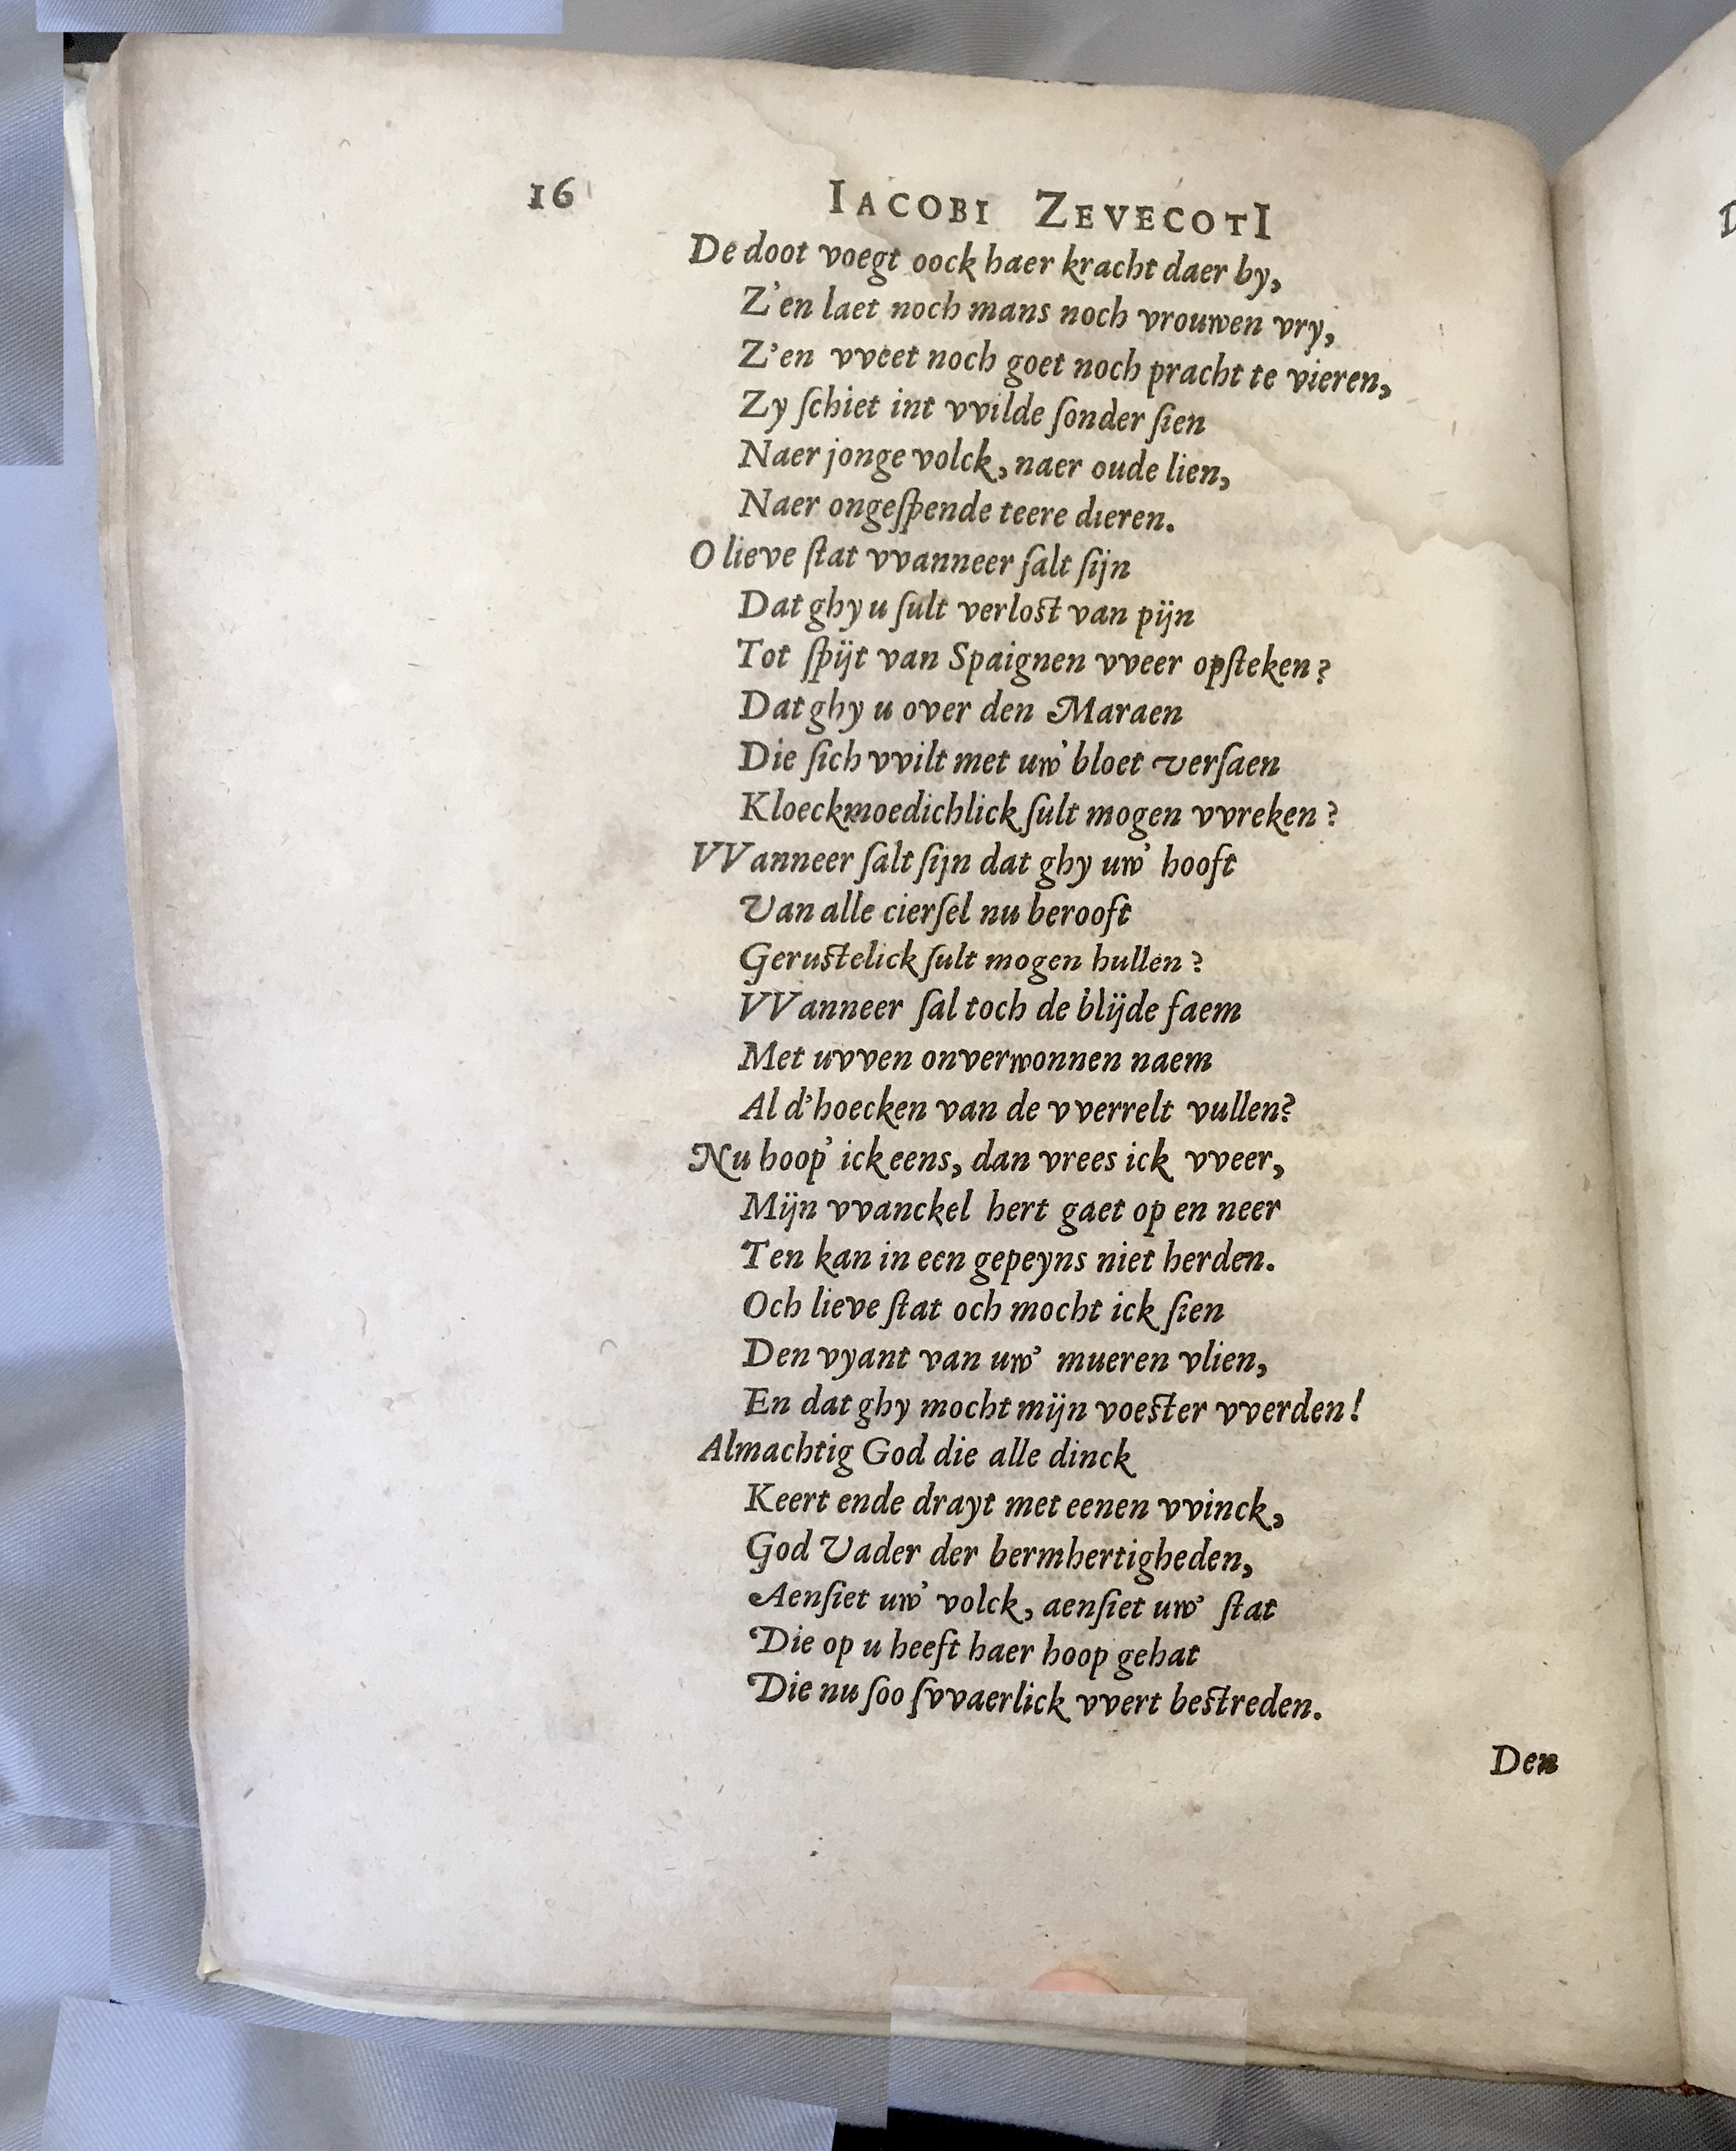 16 IACOBI ZEVECOTI
De doot voegt oock haer kracht daer by,
Z'en laet noch mans noch vrouwen vry,
Z'en vveet noch goet noch pracht te vieren,
Zy ſchiet int vvilde ſonder ſien
Naer jonge volck, naer oude lien,
Naer ongeſpende teere dieren.
O lieve ſtat vvanneer ſalt ſijn
Dat ghy u ſult verlost van pijn
Tot ſpijt van Spaignen vveer opſteken?
Dat ghy u over den Maraen
Die ſich vvilt met uw' bloet verſaen
Kloeckmoedichlick ſult mogen vvreken?
VVanneer ſalt ſijn dat ghy uw' hooft
Van alle cierſel nu berooft
Gerustelick ſult mogen hullen?
VVanneer ſal toch de blijde faem
Met uvven onverwonnen naem
Al d'hoecken van de vverrelt vullen?
Nu hoop' ick eens, dan vrees ick vveer,
Mijn vvanckel hert gaet op en neer
Ten kan in een gepeyns niet herden.
Och lieve ſtat och mocht ick ſien
Den vyant van uw' mueren vlien,
En dat ghy mocht mijn voester vverden!
Almachtig God die alle dinck
Keert ende drayt met eenen vvinck,
God Vader der bermhertigheden,
Aenſiet uw' volck, aenſiet uw' ſtat
Die op u heeft haer hoop gehat
Die nu ſoo ſvvaerlick vvert bestreden.
Den